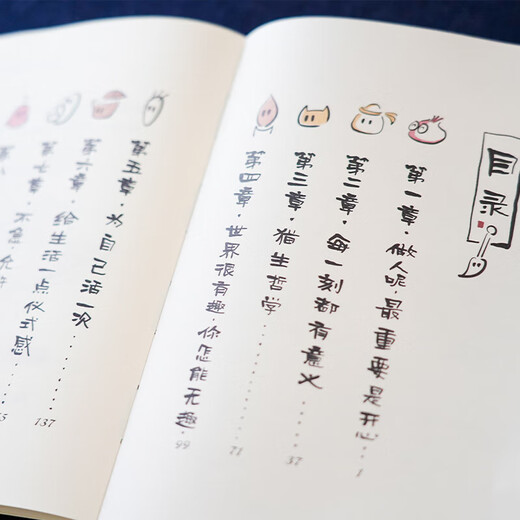 目录
第一章·做人呢,最重要是开心……1
第二章·每一刻都有意义……37
第三章·猫生哲学……71
第四章·世界很有趣,你怎能无趣……99
第五章·为自己活一次……137
第六章·给生活一点仪式感……
第七章·不急,允许